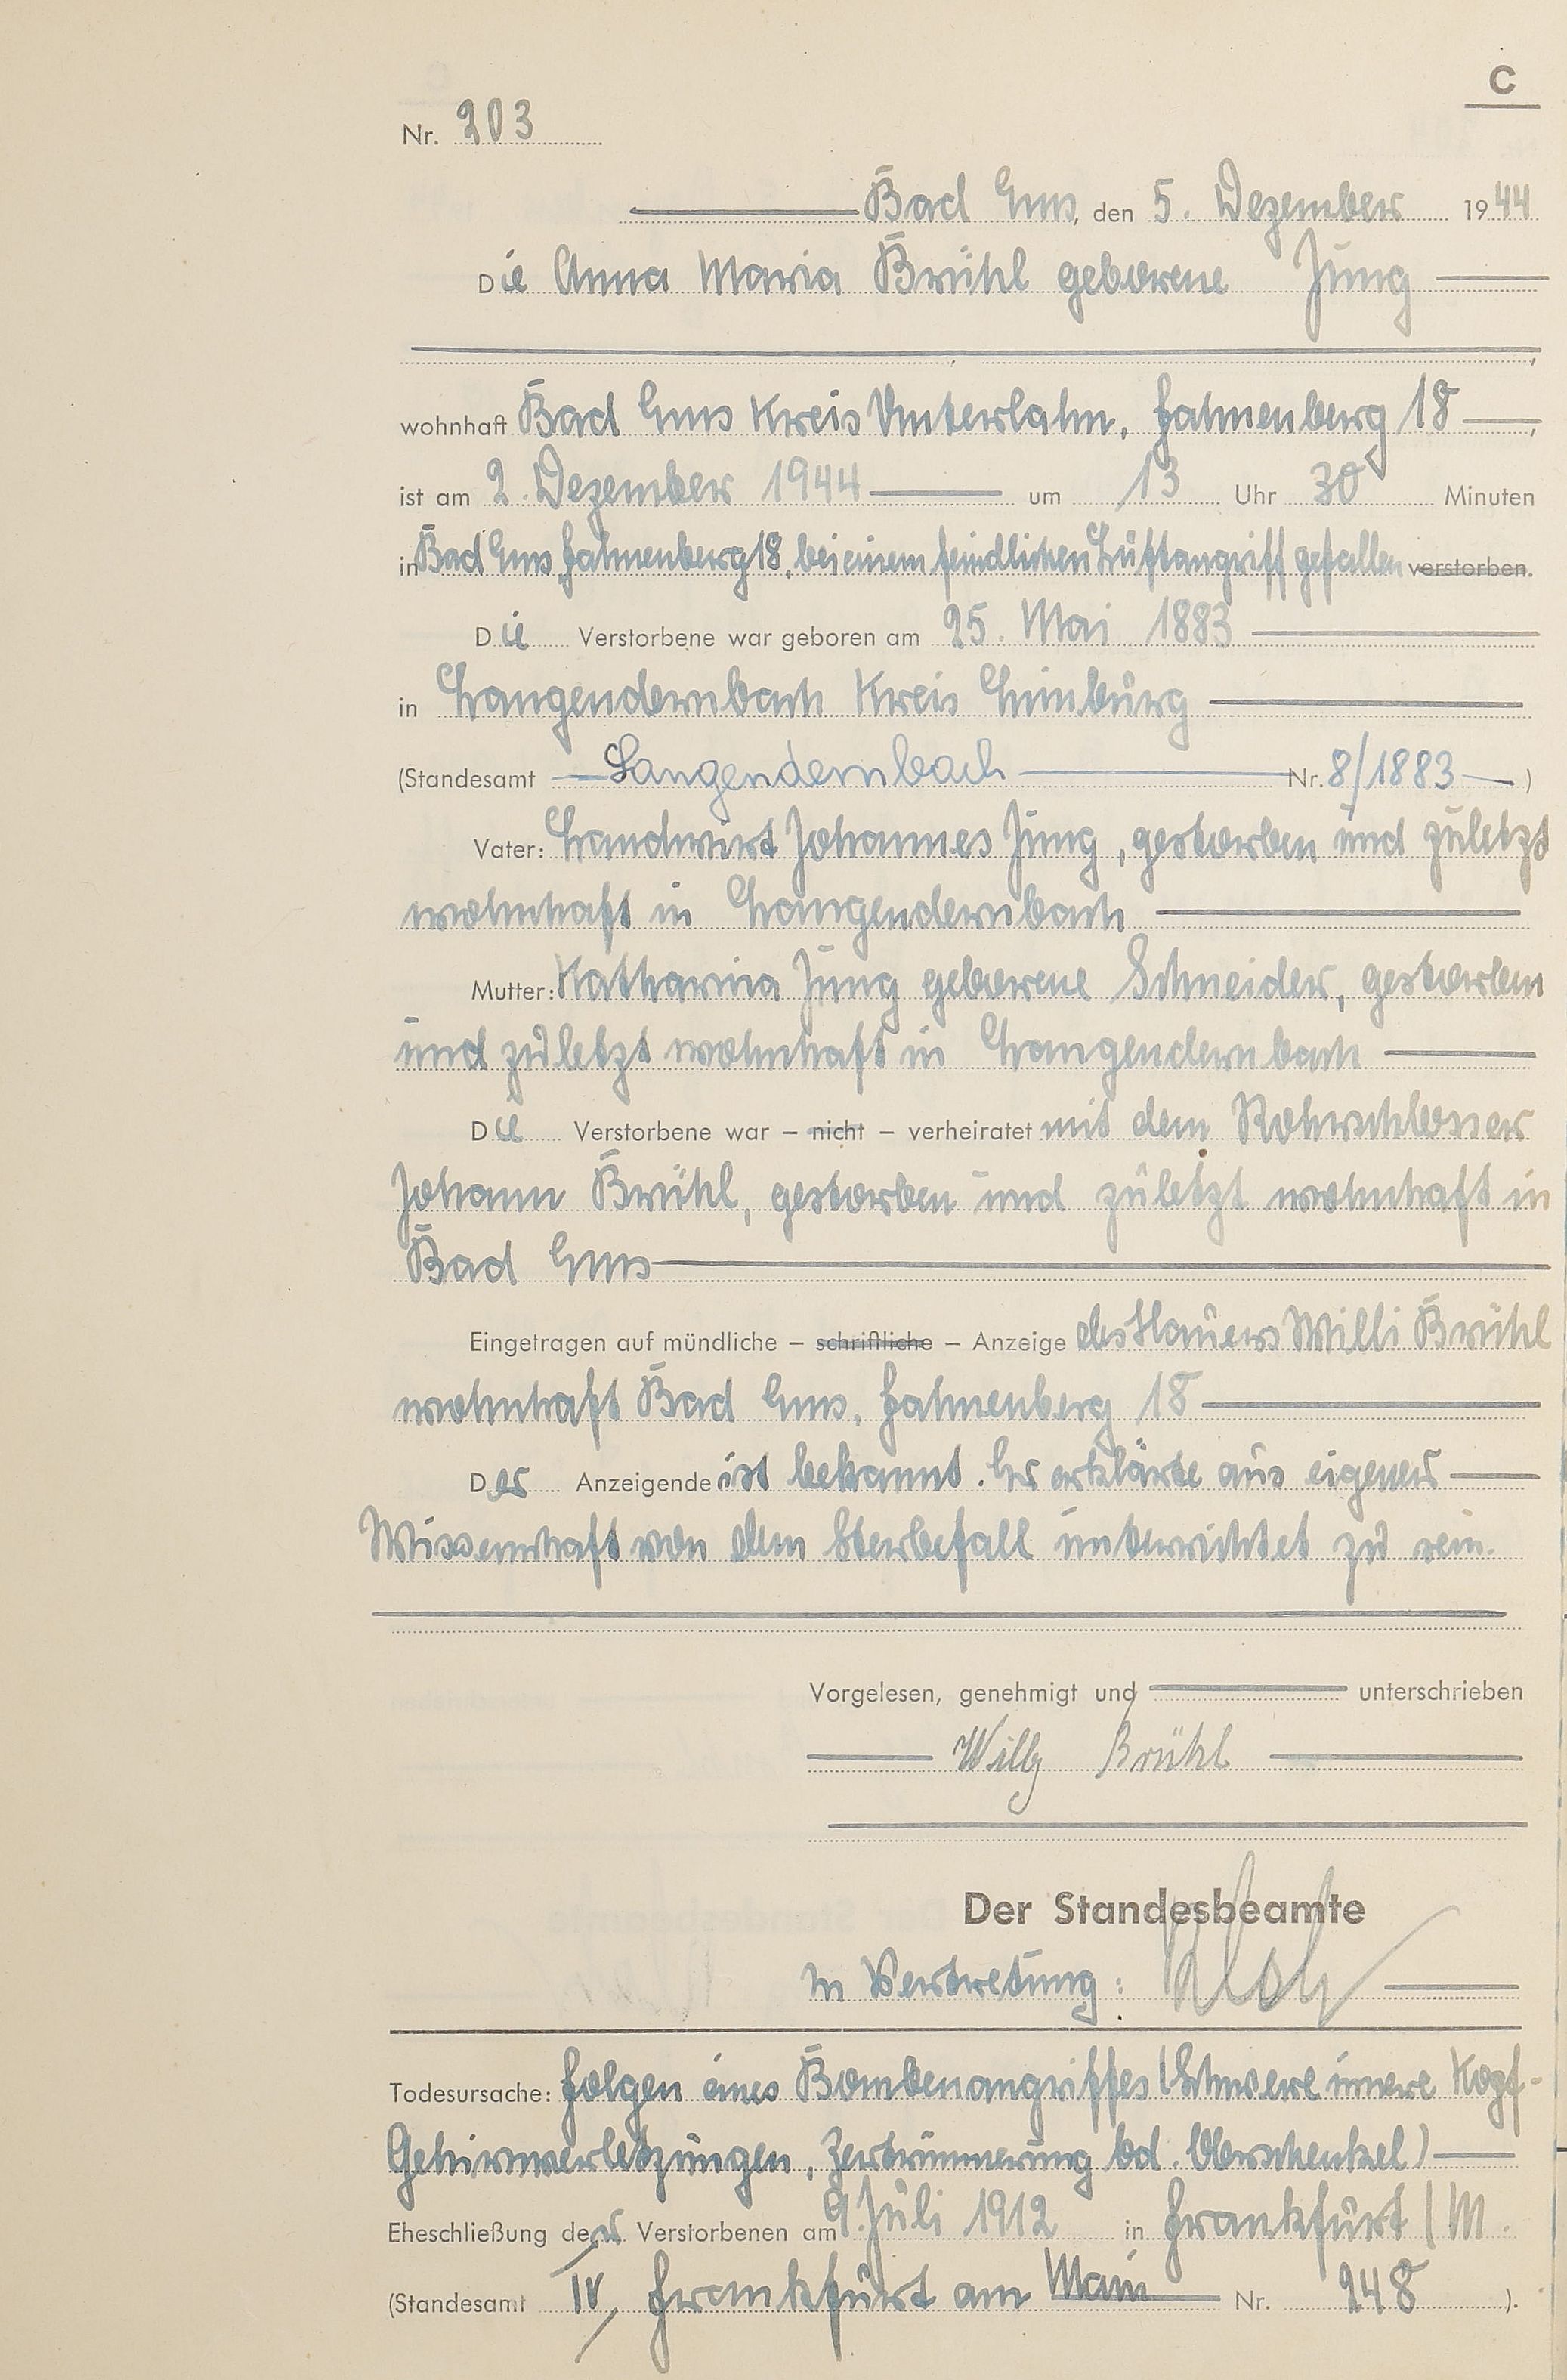 C
Nr. 203
Bad Ems, den 5. Dezember 1944
Die Anna Maria Brühl geborene Jung
wohnhaft Bad Ems Kreis Unterlahn, Fahnenberg 18,
ist am 2. Dezember 1944 um 13 Uhr 30 Minuten
in Bad Ems, Fahnenberg 18, bei einem feindlichen Luftangriff gefallen verstorben.
Die Verstorbene war geboren am 25. Mai 1883
in Langendernbach Kreis Limburg
(Standesamt Langendernbach Nr. 8/1883)
Vater: Landwirt Johannes Jung, gestorben und zuletzt
wohnhaft in Langendernbach
Mutter: Katharina Jung geborene Schneider, gestorben
und zuletzt wohnhaft in Langendernbach
Die Verstorbene war – nicht – verheiratet mit dem Rohrschlosser
Johann Brühl, gestorben und zuletzt wohnhaft in
Bad Ems
Eingetragen auf mündliche – schriftliche – Anzeige des Hauers Willi Brühl
wohnhaft Bad Ems, Fahnenberg 18
Der Anzeigende ist bekannt. Er erklärte aus eigener
Wissenschaft von dem Sterbefall unterrichtet zu sein.
Vorgelesen, genehmigt und unterschrieben
Willy Brühl
Der Standesbeamte
In Vertretung:
Todesursache: Folgen eines Bombenangriffes (Schwere innere Kopf-
Gehirnverletzungen, Zertrümmerung bd. Oberschenkel)
Eheschließung der Verstorbenen am 9. Juli 1912 in Frankfurt/M.
(Standesamt IV, Frankfurt am Main Nr. 248).